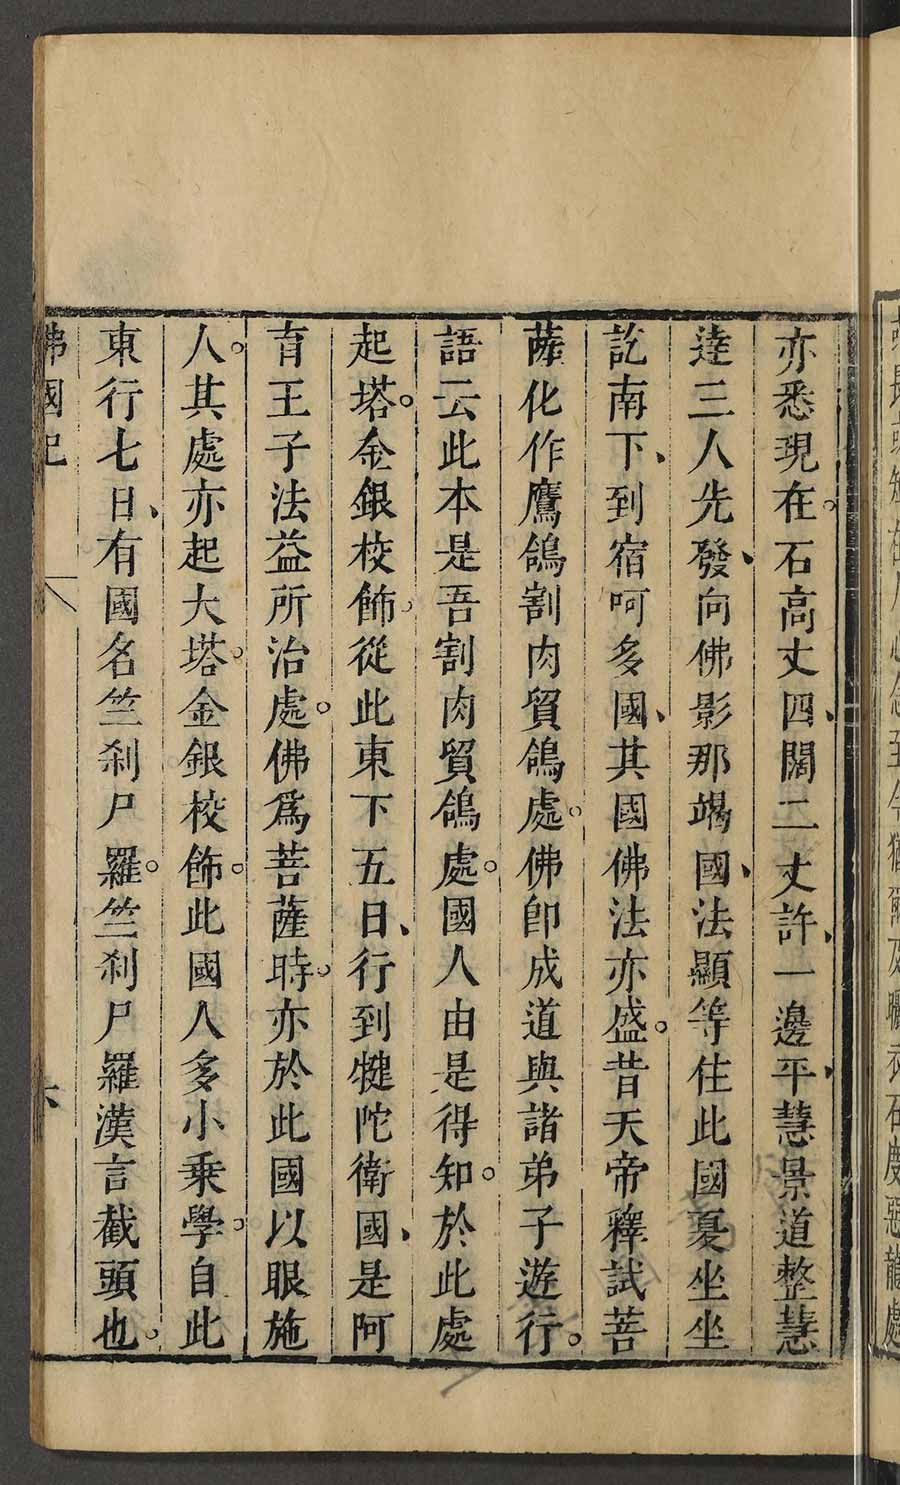 亦悉現在。石高丈四、闊二丈許、一邊平、慧景道整慧
達三人先發、向佛影那竭國、法顯等住此國夏坐坐
訖南下、到宿呵多國、其國佛法亦盛。昔天帝釋試菩
薩化作鷹鴿割肉貿鴿處。佛卽成道與諸弟子遊行。
語云此本是吾割肉貿鴿處。國人由是得知。於此處
起塔。金銀校飾。從此東下五日、行到犍陀衛國、是阿
育王子法益所治處。佛爲菩薩時。亦於此國以眼施
人。其處亦起大塔。金銀校飾。此國人多小乘學。自此
東行七日、有國名竺刹尸羅。竺刹尸羅漢言截頭也。
佛國記
六